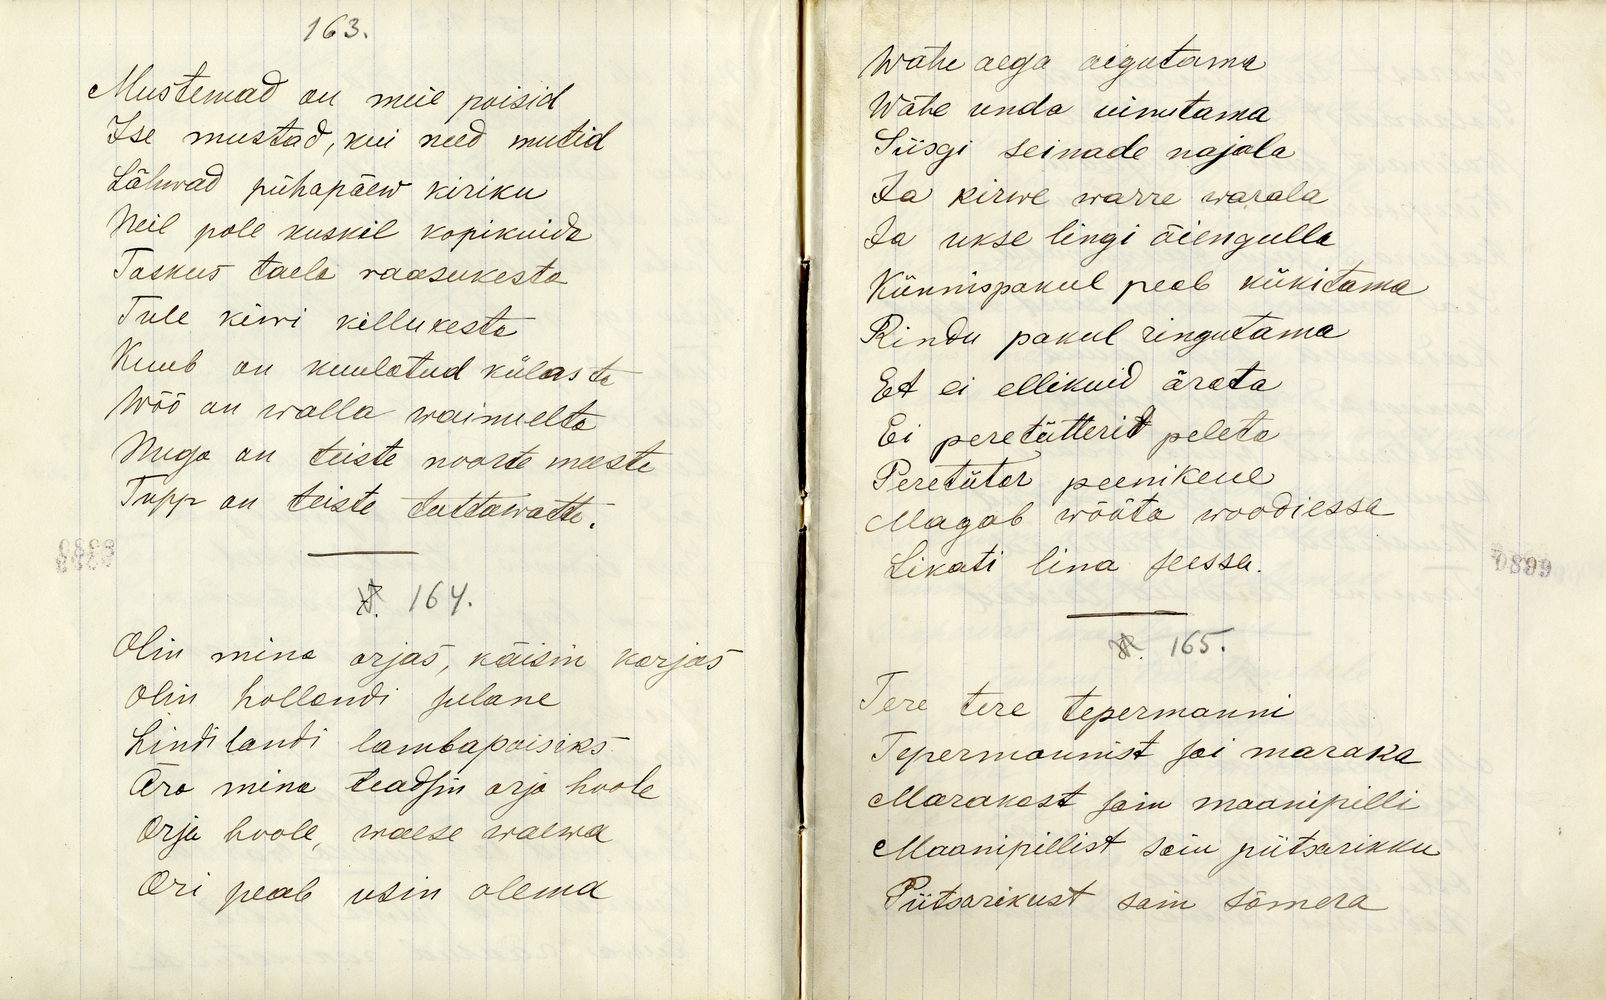 163.
Mustemad on meie poisid
Ise mustad, kui need mutid
Lähwad pühapäew kiriku
Neil pole kuskil kopikuida
Taskus taela raasukesta
Tule kiwi killukesta
Kuub on kuulatud külasta
Wöö on walla waimuelta
Nuga on teiste noorte meeste
Tupp on teiste tuttawatte.
164.
Olin mina orjas, käisin karjas
Olin hollandi sulane
Lindilandi lambapoisiks
Ära mina teadsin orja hoole
Orja hoole, waese waewa
Ori peab usin olema
Wähe aega aigutama
Wähe unda uinutama
Siisgi seinade najala
Ja kirwe warre warala
Ja ukse lingi äiengulla
Künnispakul peab kükitama
Rindu pakul ringutama
Et ei ellikuid ärata
Ei peretütterit peleta
Peretütar peenikene
Magab wööta woodiessa
Likati lina seessa.
165.
Tere tere tepermanni
Tepermannist sai maraka
Marakast sain maanipilli
Maanipillist sain piitsarikku
Piitsarikust sain sõmera